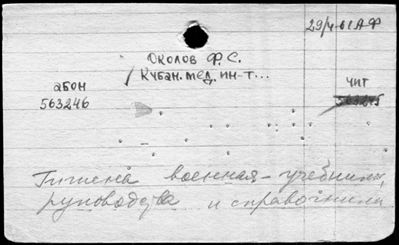 29/4-61 А Ф
Околов Ф. С.
/ Кубан. мед. ин-т...
абон
чит
563246
Гигиена военная - учебники,
руководства и справочники